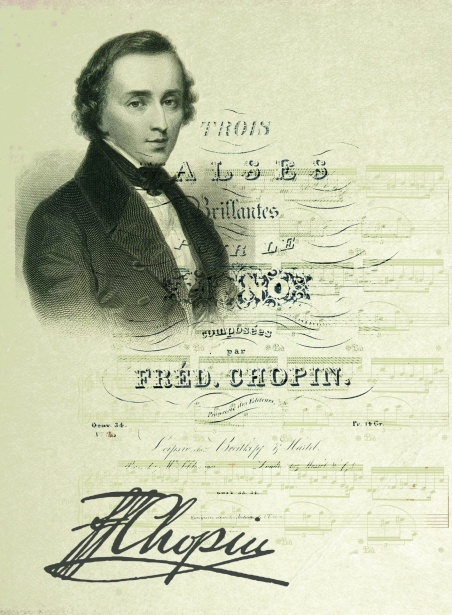 TROIS
VALSES
Brillantes
POUR LE
PIANO
composées
par
FRÉD. CHOPIN.
Propriété des Editeurs
Oeuv. 34.
Pr. 14 Gr.
Leipsic chez Breitkopf & Härtel.
FChopin